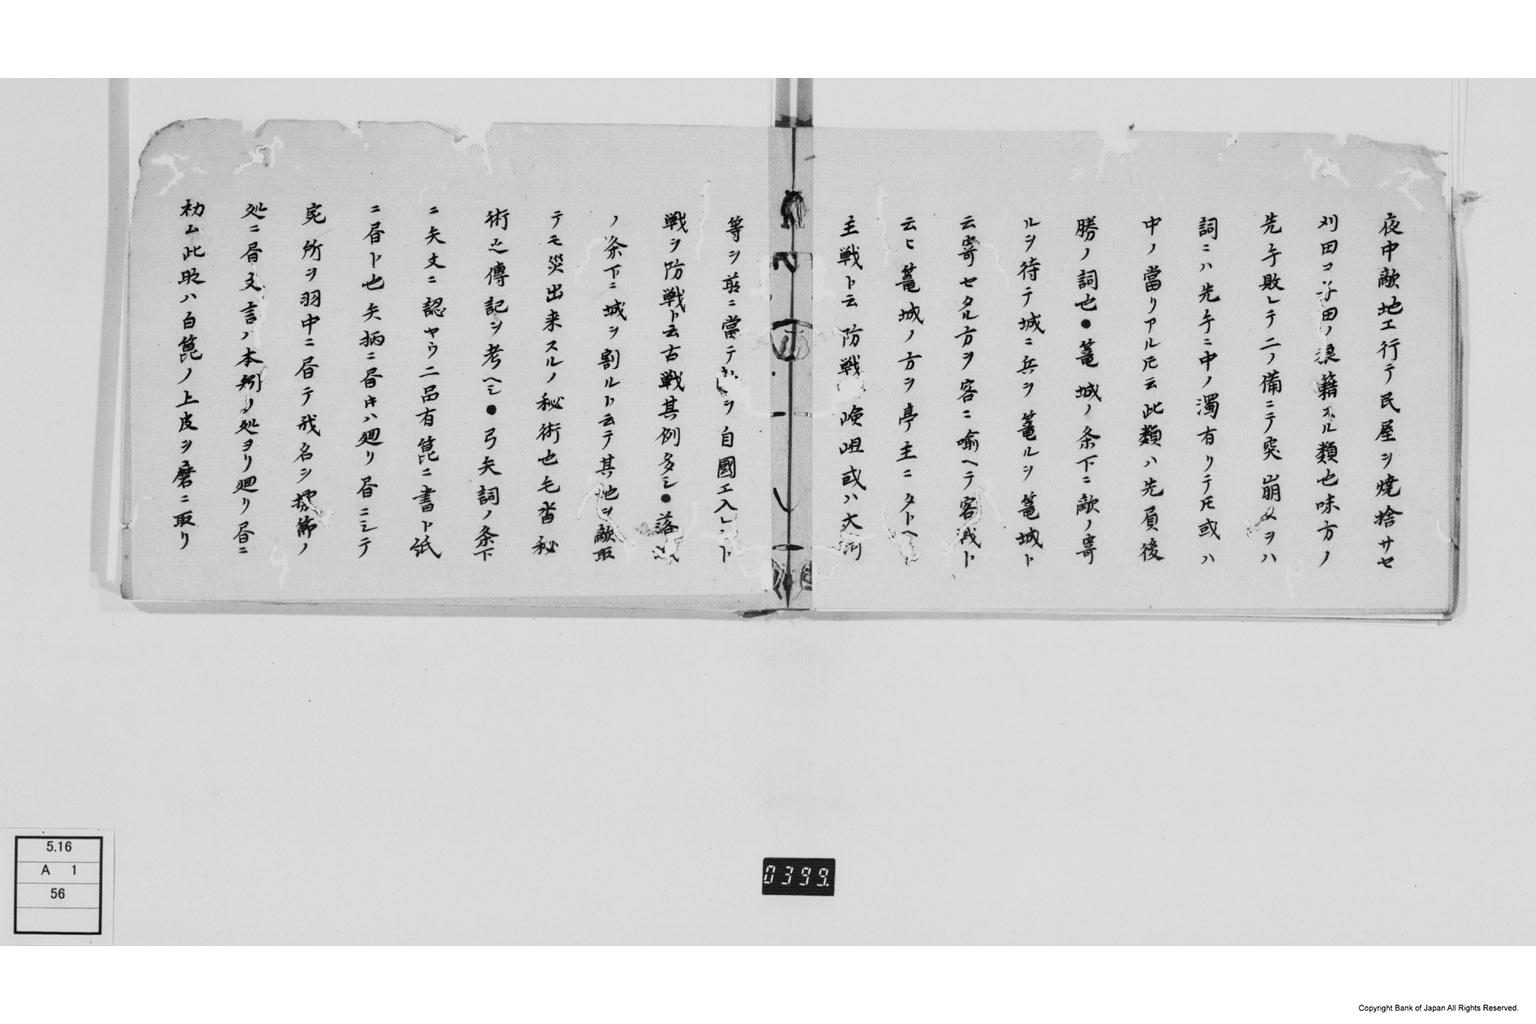 夜中敵地エ行テ民屋ヲ焼捨サセ
刈田コ子田ノ浪籍スル類也味方ノ
先手敗レテ二ノ備ニテ突崩スヲハ
詞ニハ先手ニ中ノ濁有リテ𪜈或ハ
中ノ當リアル𪜈云此類ハ先員後
勝ノ詞也●篭城ノ条下ニ敵ノ寄
ルヲ待テ城ニ兵ヲ篭ルヲ篭城ト
云寄セタル方ヲ客ニ喩ヘテ客戦ト
云ヒ篭城ノ方ヲ亭主ニタトヘ
主戦ト云防戦嶮岨或ハ大河
等ヲ前ニ當テ ヲ自國エ入レント
戦ヲ防戦ト云古戦其例多シ●落城
ノ条下ニ城ヲ割ルト云テ其地ヲ敵取
テモ災出来スルノ秘術也毛沓秘
術之傳記ヲ考ヘシ●弓矢詞ノ条下
ニ矢文ニ認ヤウ二品有箆ニ書ト紙
ニ昏ト也矢柄ニ昏キハ廻リ昏ニシテ
宛所ヲ羽中ニ昏テ我名ヲ 節ノ
処ニ昏文言ハ本矧ノ処ヨリ廻リ昏ニ
初ム此昄ハ白箆ノ上皮ヲ磨ニ取リ
5.16
A 1
56
0399
Copyright Bank of Japan All Rights Reserved.